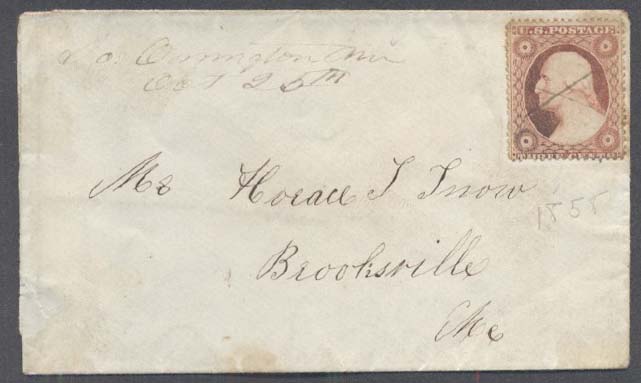 Orrington Me
Oct 25th
U.S. POSTAGE
THREE CENTS
Mr Horace S Snow
1855
Brooksville
Me